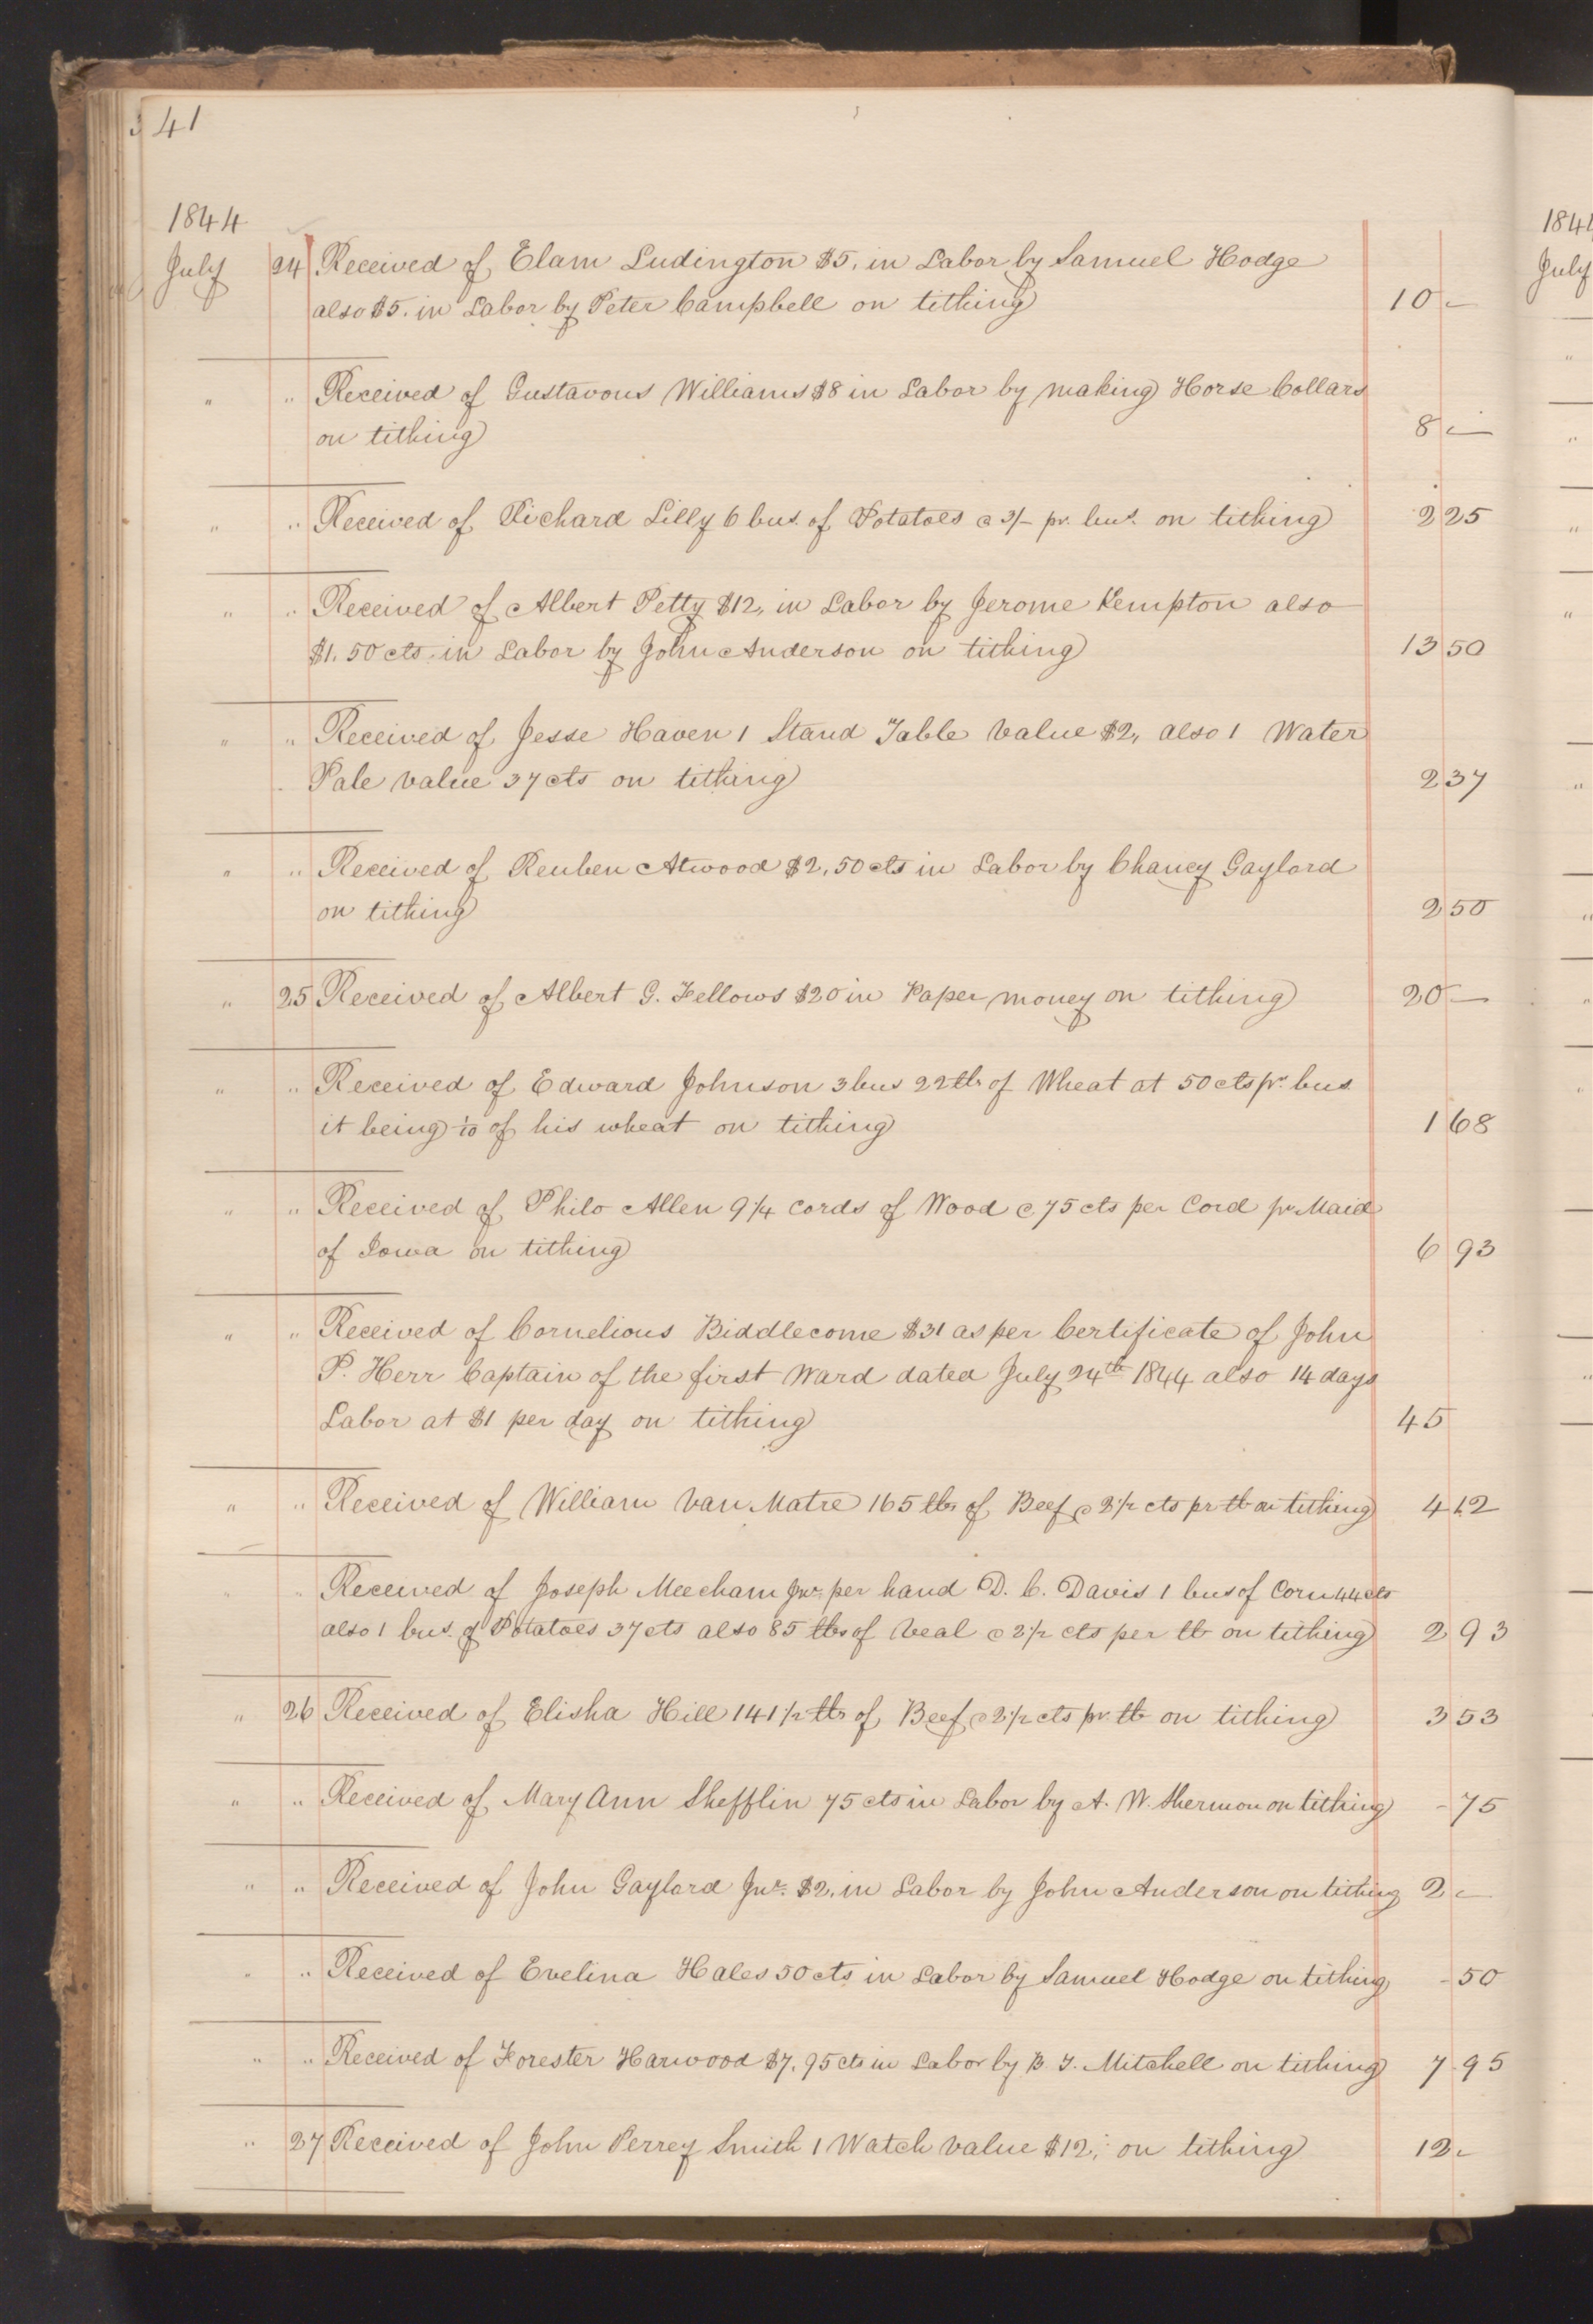 41
1844
July 24 Received of Elam Ludington $5. in Labor by Samuel Hodge
also $5. in Labor by Peter Campbell on tithing 10 –
" " Received of Gustavous Williams $8 in Labor by making Horse Collars
on tithing 8 –
" " Received of Richard Lilly 6 bus. of Potatoes @ 3/– pr. bus. on tithing 2 25
" " Received of Albert Petty $12, in Labor by Jerome Kempton also
$1.50 cts in Labor by John Anderson on tithing 13 50
" " Received of Jesse Haven 1 Stand Table value $2, also 1 Water
Pale value 37 cts on tithing 2 37
" " Received of Reuben Atwood $2,50 cts in Labor by Chancy Gaylord
on tithing 2 50
" 25 Received of Albert G. Fellows $20 in Paper money on tithing 20 –
" " Received of Edward Johnson 3 bus 22 lb of Wheat at 50 cts pr. bus
it being 1/10 of his wheat on tithing 1 68
" " Received of Philo Allen 9 1/4 cords of Wood @ 75 cts per Cord pr Maid
of Iowa on tithing 6 93
" " Received of Cornelious Biddlecome $31 as per Certificate of John
P. Herr Captain of the first Ward dated July 24th 1844 also 14 days
Labor at $1 per day on tithing 45
" " Received of William Van Matre 165 lbs of Beef @ 2 1/2 cts pr lb on tithing 4 12
" " Received of Joseph Meecham Jnr. per hand D. C. Davis 1 bus of Corn 44 cts
also 1 bus. of Potatoes 37 cts also 85 lbs of Veal @ 2 1/2 cts per lb on tithing 2 93
" 26 Received of Elisha Hill 141 1/2 lbs of Beef @ 2 1/2 cts pr. lb on tithing 3 53
" " Received of Mary Ann Shefflin 75 cts in Labor by A. W. Shermon on tithing - 75
" " Received of John Gaylord Jnr. $2, in Labor by John Anderson on tithing 2 –
" " Received of Evelina Hales 50 cts in Labor by Samuel Hodge on tithing - 50
" " Received of Forester Harwood $7,95 cts in Labor by B. T. Mitchell on tithing 7 95
" 27 Received of John Perrey Smith 1 Watch value $12, on tithing 12 -
184
July